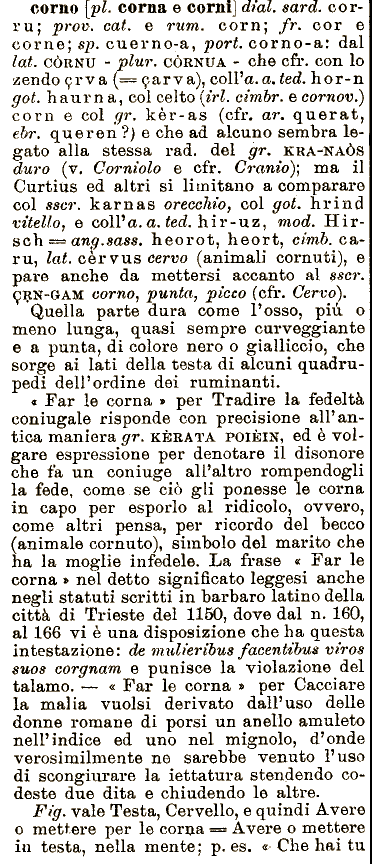 corno [pl. corna e corni] dial. sard. cor-
ru; prov. cat. e rum. corn; fr. cor e
corne; sp. cuerno-a, port. corno-a: dal
lat. CÒRNU - plur. CÒRNUA - che cfr. con lo
zendo çrva (= çarva), coll'a. a. ted. hor-n
got. haurna, col celto (irl. cimbr. e cornov.)
corn e col gr. kèr-as (cfr. ar. querat,
ebr. queren ?) e che ad alcuno sembra le-
gato alla stessa rad. del gr. KRA-NAÒS
duro (v. Corniolo e cfr. Cranio); ma il
Curtius ed altri si limitano a comparare
col sscr. karnas orecchio, col got. hrind
vitello, e coll'a. a. ted. hir-uz, mod. Hir-
sch = ang. sass. heorot, heort, cimb. ca-
ru, lat. cèrvus cervo (animali cornuti), e
pare anche da mettersi accanto al sscr.
ÇRN-GAM corno, punta, picco (cfr. Cervo).
Quella parte dura come l'osso, più o
meno lunga, quasi sempre curveggiante
e a punta, di colore nero o gialliccio, che
sorge ai lati della testa di alcuni quadru-
pedi dell'ordine dei ruminanti.
« Far le corna » per Tradire la fedeltà
coniugale risponde con precisione all'an-
tica maniera gr. KÈRATA POIÈIN, ed è vol-
gare espressione per denotare il disonore
che fa un coniuge all'altro rompendogli
la fede, come se ciò gli ponesse le corna
in capo per esporlo al ridicolo, ovvero,
come altri pensa, per ricordo del becco
(animale cornuto), simbolo del marito che
ha la moglie infedele. La frase « Far le
corna » nel detto significato leggesi anche
negli statuti scritti in barbaro latino della
città di Trieste del 1150, dove dal n. 160,
al 166 vi è una disposizione che ha questa
intestazione: de mulieribus facentibus viros
suos corgnam e punisce la violazione del
talamo. — « Far le corna » per Cacciare
la malìa vuolsi derivato dall'uso delle
donne romane di porsi un anello amuleto
nell'indice ed uno nel mignolo, d'onde
verosimilmente ne sarebbe venuto l'uso
di scongiurare la iettatura stendendo co-
deste due dita e chiudendo le altre.
Fig. vale Testa, Cervello, e quindi Avere
o mettere per le corna = Avere o mettere
in testa, nella mente; p. es. « Che hai tu